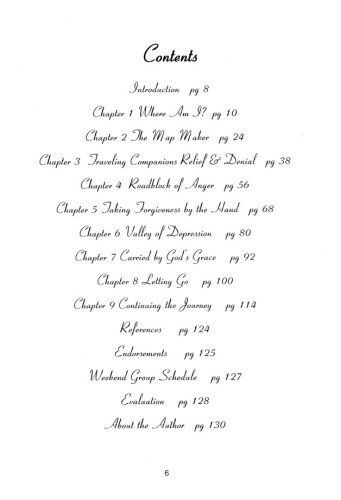 Contents
Introduction pg 8
Chapter 1 Where Am I? pg 10
Chapter 2 The Map Maker pg 24
Chapter 3 Traveling Companions Relief & Denial pg 38
Chapter 4 Roadblock of Anger pg 56
Chapter 5 Taking Forgiveness by the Hand pg 68
Chapter 6 Valley of Depression pg 80
Chapter 7 Carried by God's Grace pg 92
Chapter 8 Letting Go pg 100
Chapter 9 Continuing the Journey pg 114
References pg 124
Endorsements pg 125
Weekend Group Schedule pg 127
Evaluation pg 128
About the Author pg 130
6